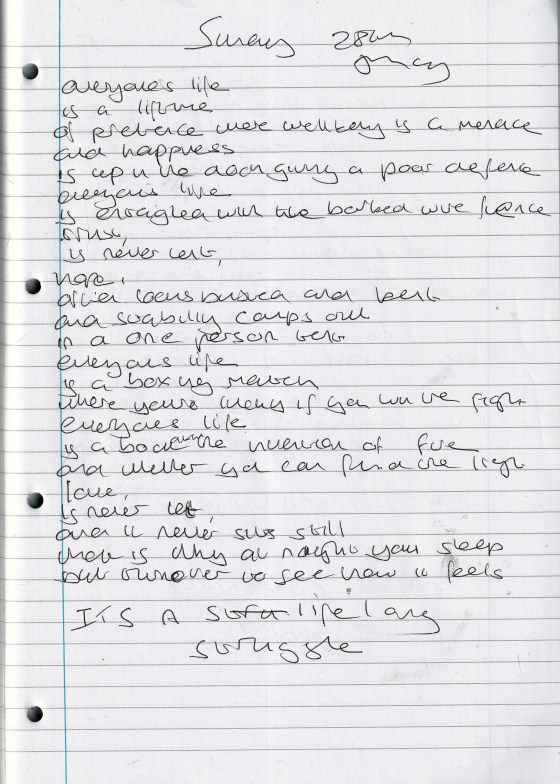 Sunday 28th
May
everyones life
is a lifetime
of pretence were wellbeing is a menace
and happness
is up in the dock giving a poor defence
everyones life
is entangled with the barbed wire fence
trust,
is never lent,
hope,
often looks bruised and bent
and stability camps out
in a one person tent
everyones life
is a boxing match
where youre lucky if you win the fight
everyones life
is a book about the invention of fire
and wether you can find the light
love,
is never let,
and it never sits still
that is why at nights you sleep
but turnover to see how it feels
ITS A lifelong
struggle